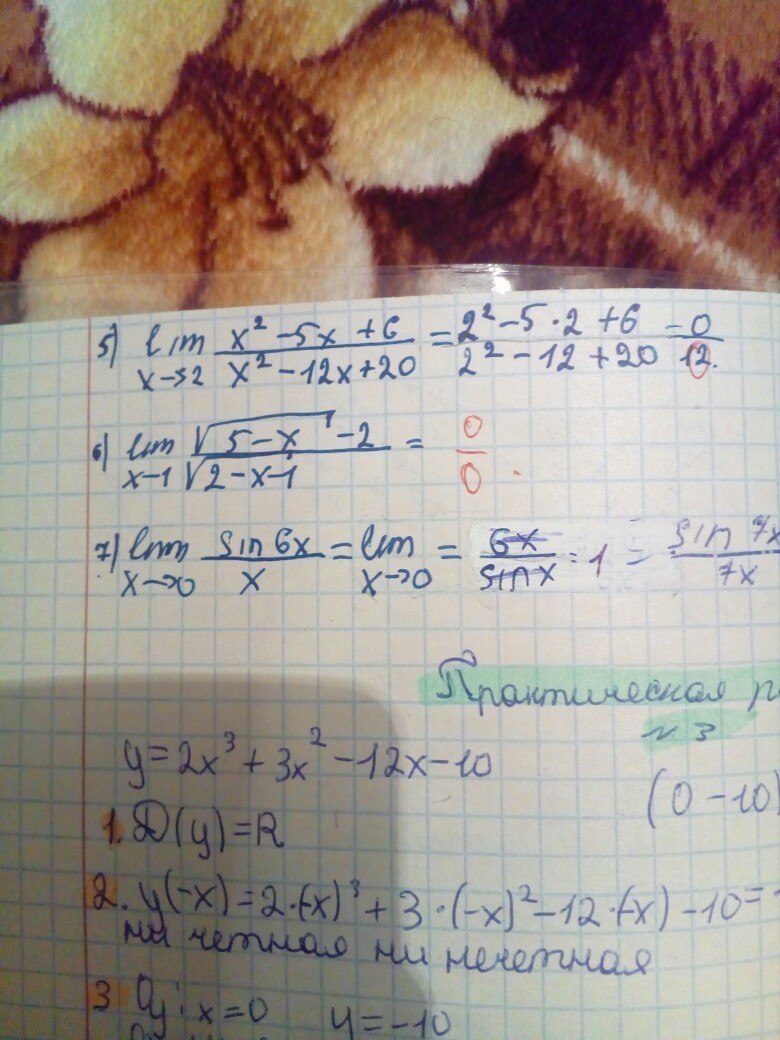 5) lim x→2 (x² -5x +6)/(x² -12x+20) = (2² -5·2 +6)/(2² -12 +20) = 0/12.
6) lim x-1 (√5-x -2)/(√2-x-1) = 0/0.
7) lim x→0 sin 6x/x = lim x→0 = 6x/sin x = 1 = sin 7x/7x
Практическая
№3
y=2x³+3x²-12x-10
(0-10)
1. D(y)=R
2. y(-x)=2·(-x)³+3·(-x)²-12·(-x)-10=
ни четная ни нечетная
3 Oy: x=0 y=-10